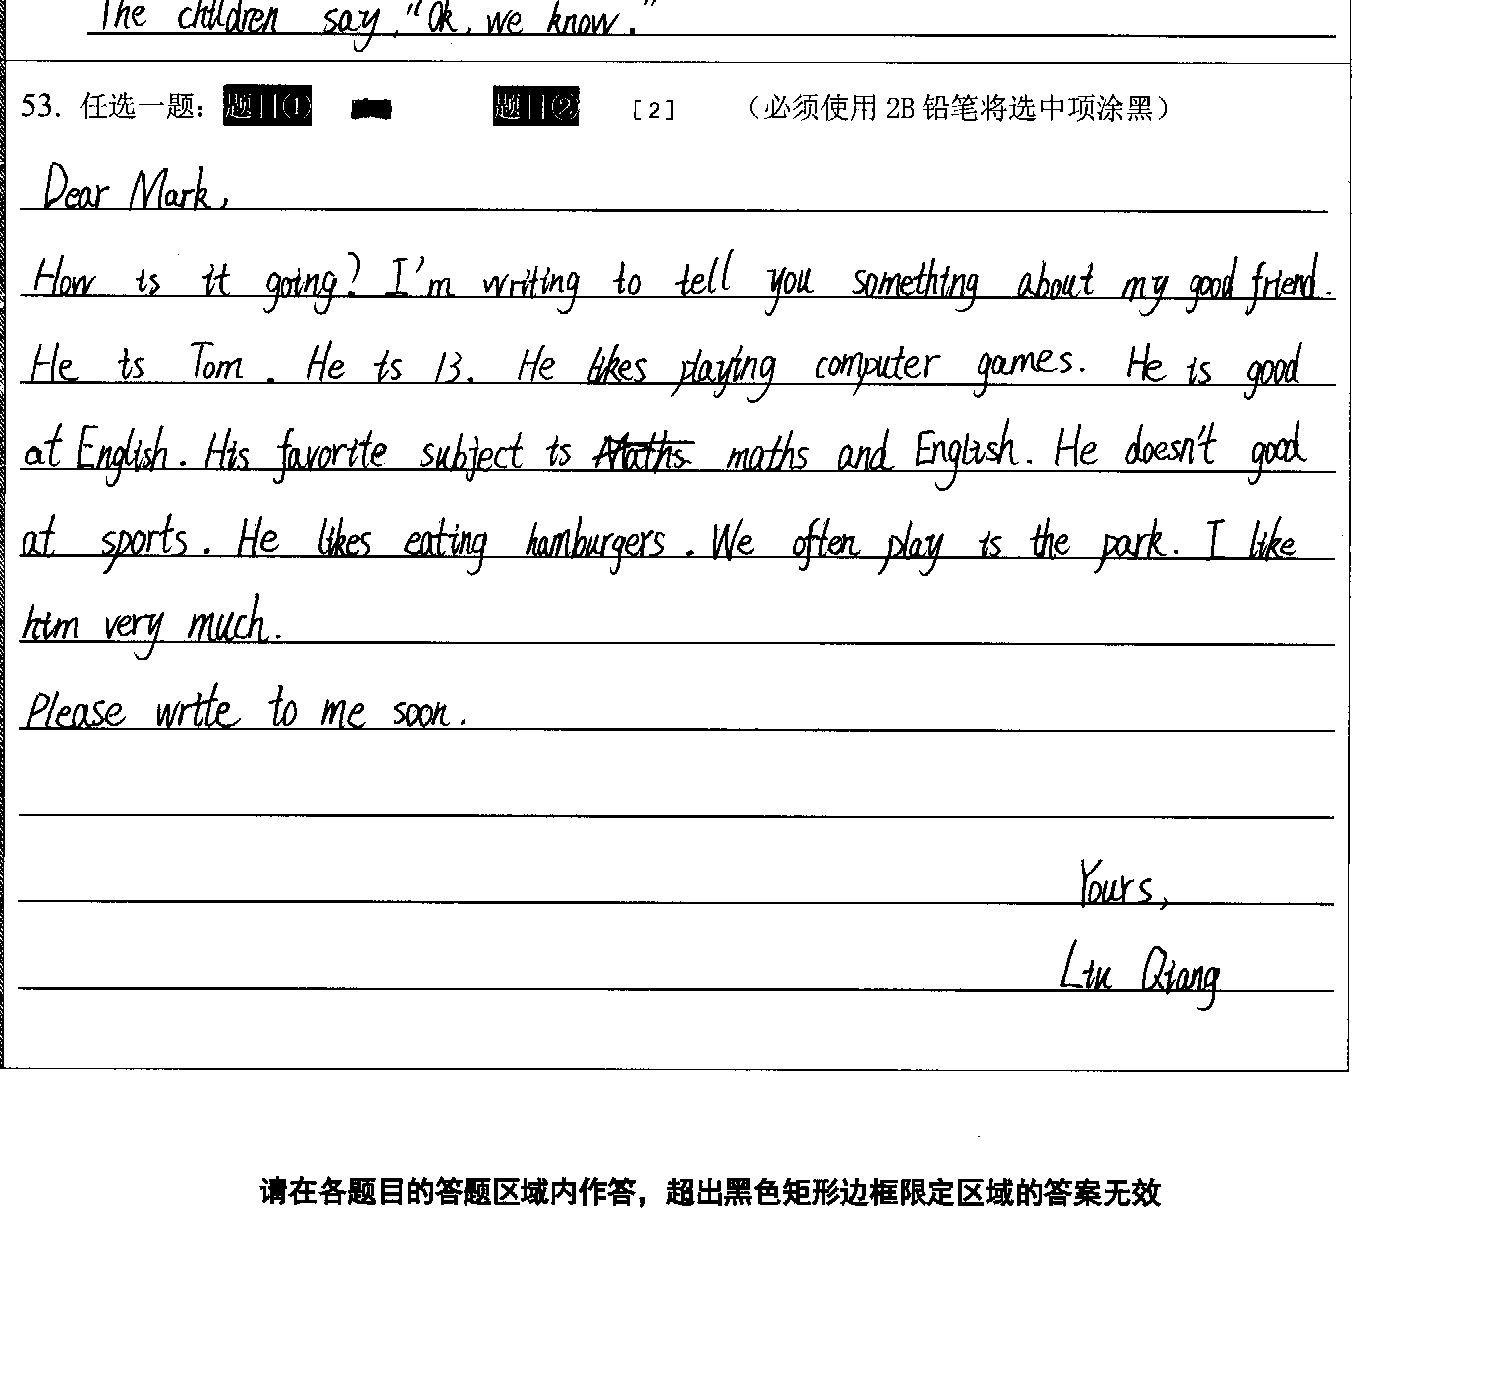 The children say, "Ok, we know."
53. 任选一题: 题目① 题目② [2] (必须使用 2B 铅笔将选中项涂黑)
Dear Mark,
How is it going? I'm writing to tell you something about my good friend.
He is Tom. He is 13. He likes playing computer games. He is good
at English. His favorite subject is Maths maths and English. He doesn't good
at sports. He likes eating hamburgers. We often play is the park. I like
him very much.
Please write to me soon.
Yours,
Liu Qiang
请在各题目的答题区域内作答，超出黑色矩形边框限定区域的答案无效